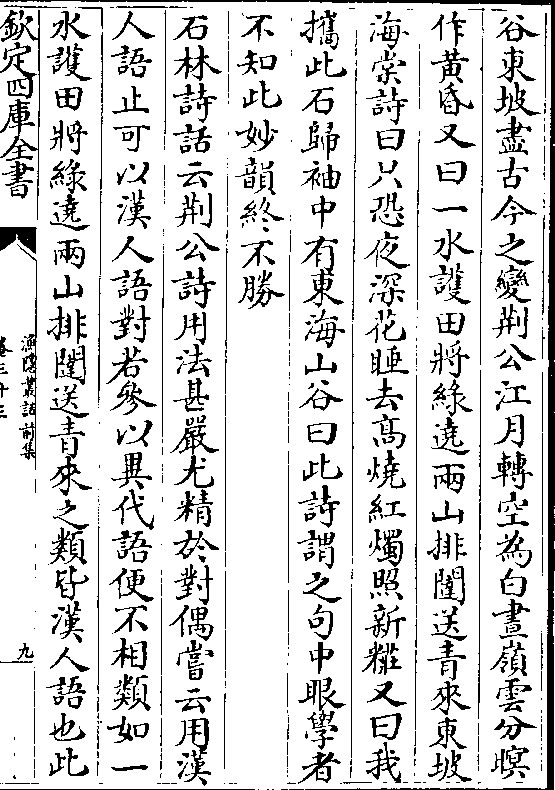 谷東坡盡古今之變荆公江月轉空為白晝嶺雲分暝
作黄昏又曰一水護田將綠遶兩山排闥送青來東坡
海棠詩曰只恐夜深花睡去髙燒紅燭照新粧又曰我
攜此石歸袖中有東海山谷曰此詩謂之句中眼學者
不知此妙韻終不勝
石林詩話云荆公詩用法甚嚴尤精於對偶嘗云用漢
人語止可以漢人語對若參以異代語便不相類如一
水護田將綠遶兩山排闥送青來之類皆漢人語也此
欽定四庫全書
漁隱叢話前集
卷三十三
九